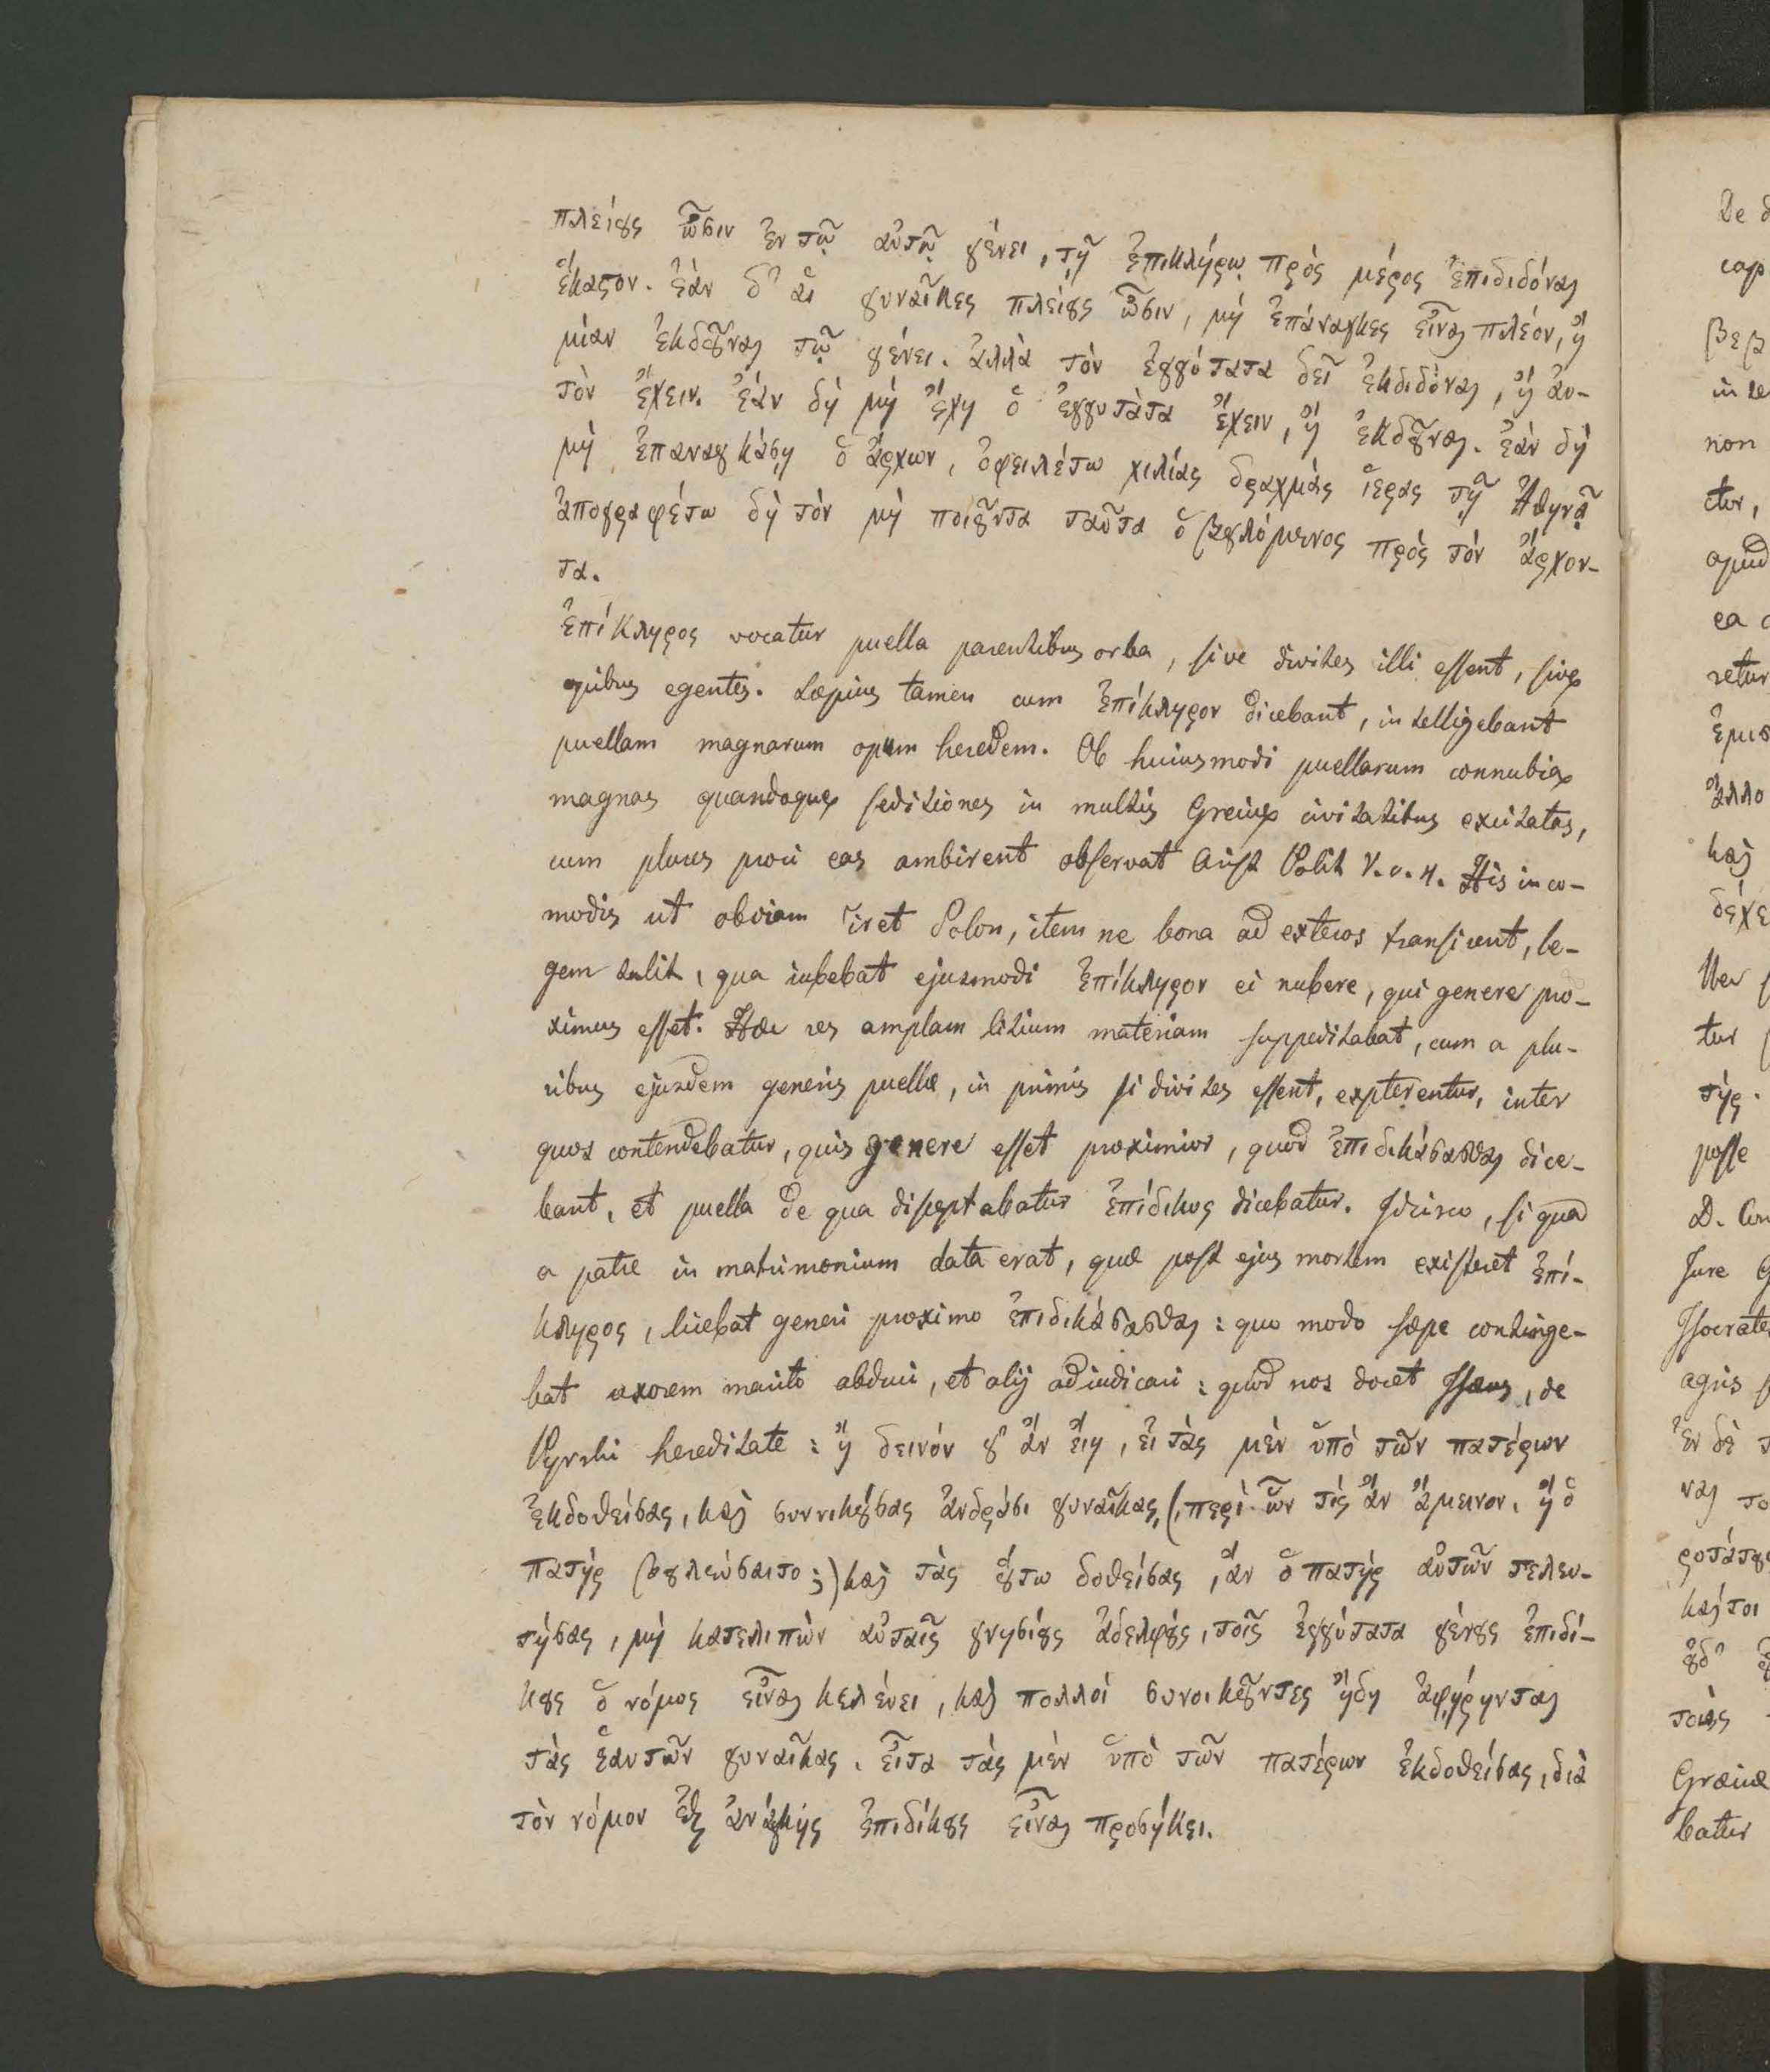 πλείους ὦσιν ἐν τῷ αὐτῷ γένει, τῇ ἐπικλήρῳ πρὸς μέρος ἐπιδιδόναι
ἕκαστον. ἐὰν δ' αἱ γυναῖκες πλείους ὦσιν, μὴ ἐπάναγκες εἶναι πλέον, ἢ
μίαν ἐκδοῦναι τῷ γένει. ἀλλὰ τὸν ἐγγύτατα δεῖ ἐκδιδόναι, ἢ αὐ-
τὸν ἔχειν. ἐὰν δὴ μὴ ἔχῃ ὁ ἐγγυτάτα ἔχειν, ἢ ἐκδοῦναι. ἐὰν δὴ
μὴ ἐπαναγκάσῃ ὁ ἄρχων, ὀφειλέτω χιλίας δραχμὰς ἱερας τῇ Ἀθηνᾷ
ἀπογραφέτω δὴ τὸν μὴ ποιοῦντα ταῦτα ὁ βουλόμενος πρὸς τὸν ἄρχον-
τα.
Ἐπίκληρος vocatur puella parentibus orba, sive divites illi essent, sive
opibus egentes. Sæpius tamen cum ἐπίκληρον dicebant, intelligebant
puellam magnarum opum heredem. Ob huiusmodi puellarum connubia
magnas quandoque seditiones in multis Greciæ civitatibus excitatas,
cum plures proci eas ambirent observat Arist Polit V. c. 4. His inco-
modis ut obviam iret Solon, item ne bona ad exteros transirent, le-
gem tulit, qua iubebat ejusmodi ἐπίκληρον ei nubere, qui genere pro-
ximus esset. Hæc res amplam litium materiam suppeditabat, cum a plu-
ribus ejusdem generis puellæ, in primis si divites essent, expterentur, inter
quos contendebatur, quis genere esset proximior, quod ἐπιδικάσασθαι dice-
bant, et puella de qua disceptabatur ἐπίδικος dicebatur. Idcirco, si qua
a patre in matrimonium data erat, quæ post ejus mortem existeret ἐπί-
κληρος, licebat generi proximo ἐπιδικάσασθαι: quo modo sæpe continge-
bat uxorem marito abduci, et alij adiudicari: quod nos docet Isæus, de
Pyrrhi hereditate: ἢ δεινόν γ' ἂν εἴη, εἰ τὰς μὲν ὑπὸ τῶν πατέρων
ἐκδοθείσας, καὶ συνοικούσας ἀνδράσι γυναῖκας, (περὶ ὧν τίς ἂν ἄμεινον, ἢ ὁ
πατὴρ βουλεύσαιτο;) καὶ τὰς οὕτω δοθείσας, ἂν ὁ πατὴρ αὐτῶν τελευ-
τήσας, μὴ κατελιπὼν αὐταῖς γνησίους ἀδελφούς, τοῖς ἐγγύτατα γένους ἐπιδί-
κους ὁ νόμος εἶναι κελεύει, καὶ πολλοὶ συνοικοῦντες ἤδη ἀφῄρηνται
τὰς ἑαυτῶν γυναῖκας. εἶτα τὰς μὲν ὑπὸ τῶν πατέρων ἐκδοθείσας, διὰ
τὸν νόμον ἐξ ἀνάγκης ἐπιδίκους εἶναι προσήκει.